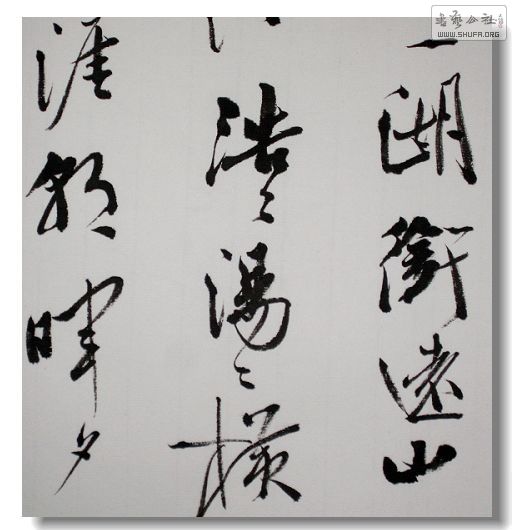 一湖銜遠山
浩〻湯〻橫
涯朝暉夕
書藝公社
WWW.SHUFA.ORG